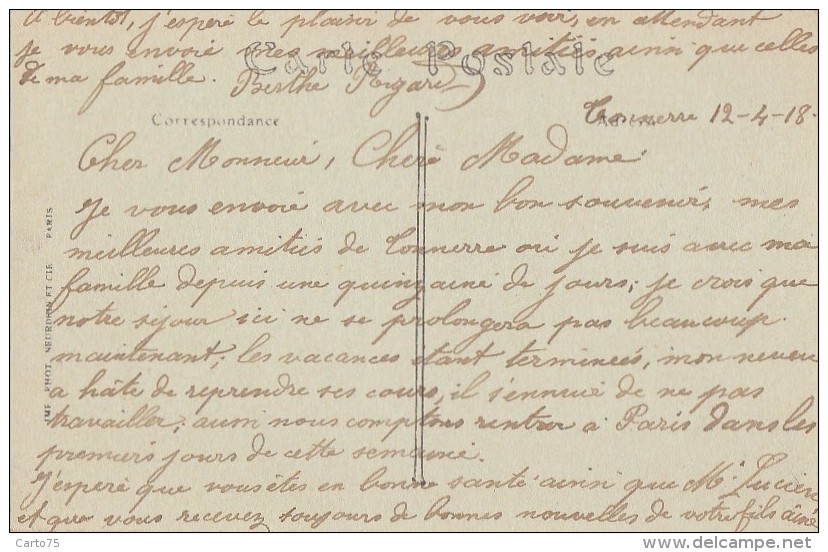 A bientôt, j'espère le plaisir de vous voir, en attendant
je vous envoie mes meilleures amitiés ainsi que celles
de ma famille. Berthe
Carte Postale
Correspondance
Tonnerre 12-4-18.
Cher Monsieur, Chère Madame
Je vous envoie avec mon bon souvenir, mes
meilleures amitiés de Tonnerre où je suis avec ma
famille depuis une quinzaine de jours; je crois que
notre séjour ici ne se prolongera pas beaucoup
maintenant; les vacances étant terminées, mon neveu
a hâte de reprendre ses cours, il s'ennuie de ne pas
travailler; aussi nous comptons rentrer à Paris dans les
premiers jours de cette semaine.
J'espère que vous êtes en bonne santé ainsi que Mr Lucien
et que vous recevez toujours de bonnes nouvelles de votre fils aîné
IMP. PHOT. NEURDEIN ET CIE PARIS
Carto75
www.delcampe.net